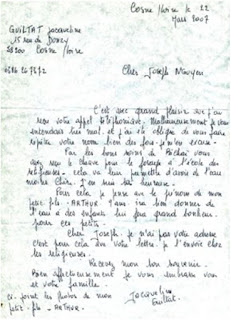 Cosne s/Loire le 22
Mars 2007
GUILTAT Jacqueline
15 rue de Donzy
58200 Cosne s/Loire
Cher Joseph Nduyen
C'est avec grand plaisir que j'ai
reçu votre appel téléphonique. Malheureusement je vous
entendais fort mal, et j'ai été obligée de vous faire
répéter votre nom bien des fois, je m'en excuse.
Par les bons soins de
vous avez le chèque pour le forage à l'école des
religieuses. cela va leur permettre d'avoir de l'eau
moins chère. J'en suis très heureuse.
Pour cela je pense le prénom de mon
petit fils - ARTHUR 9 ans. ira bien donner de
l'eau à des enfants lui fera grand bonheur.
pour ce petit.
Cher Joseph. je n'ai pas votre adresse
c'est pour cela que votre lettre, je l'envoie chez
les religieuses.
Recevez mon bon souvenir.
Bien affectueusement je vous embrasse vous
et votre famille.
Jacqueline
ci-joint les photos de mon
petit fils - ARTHUR -